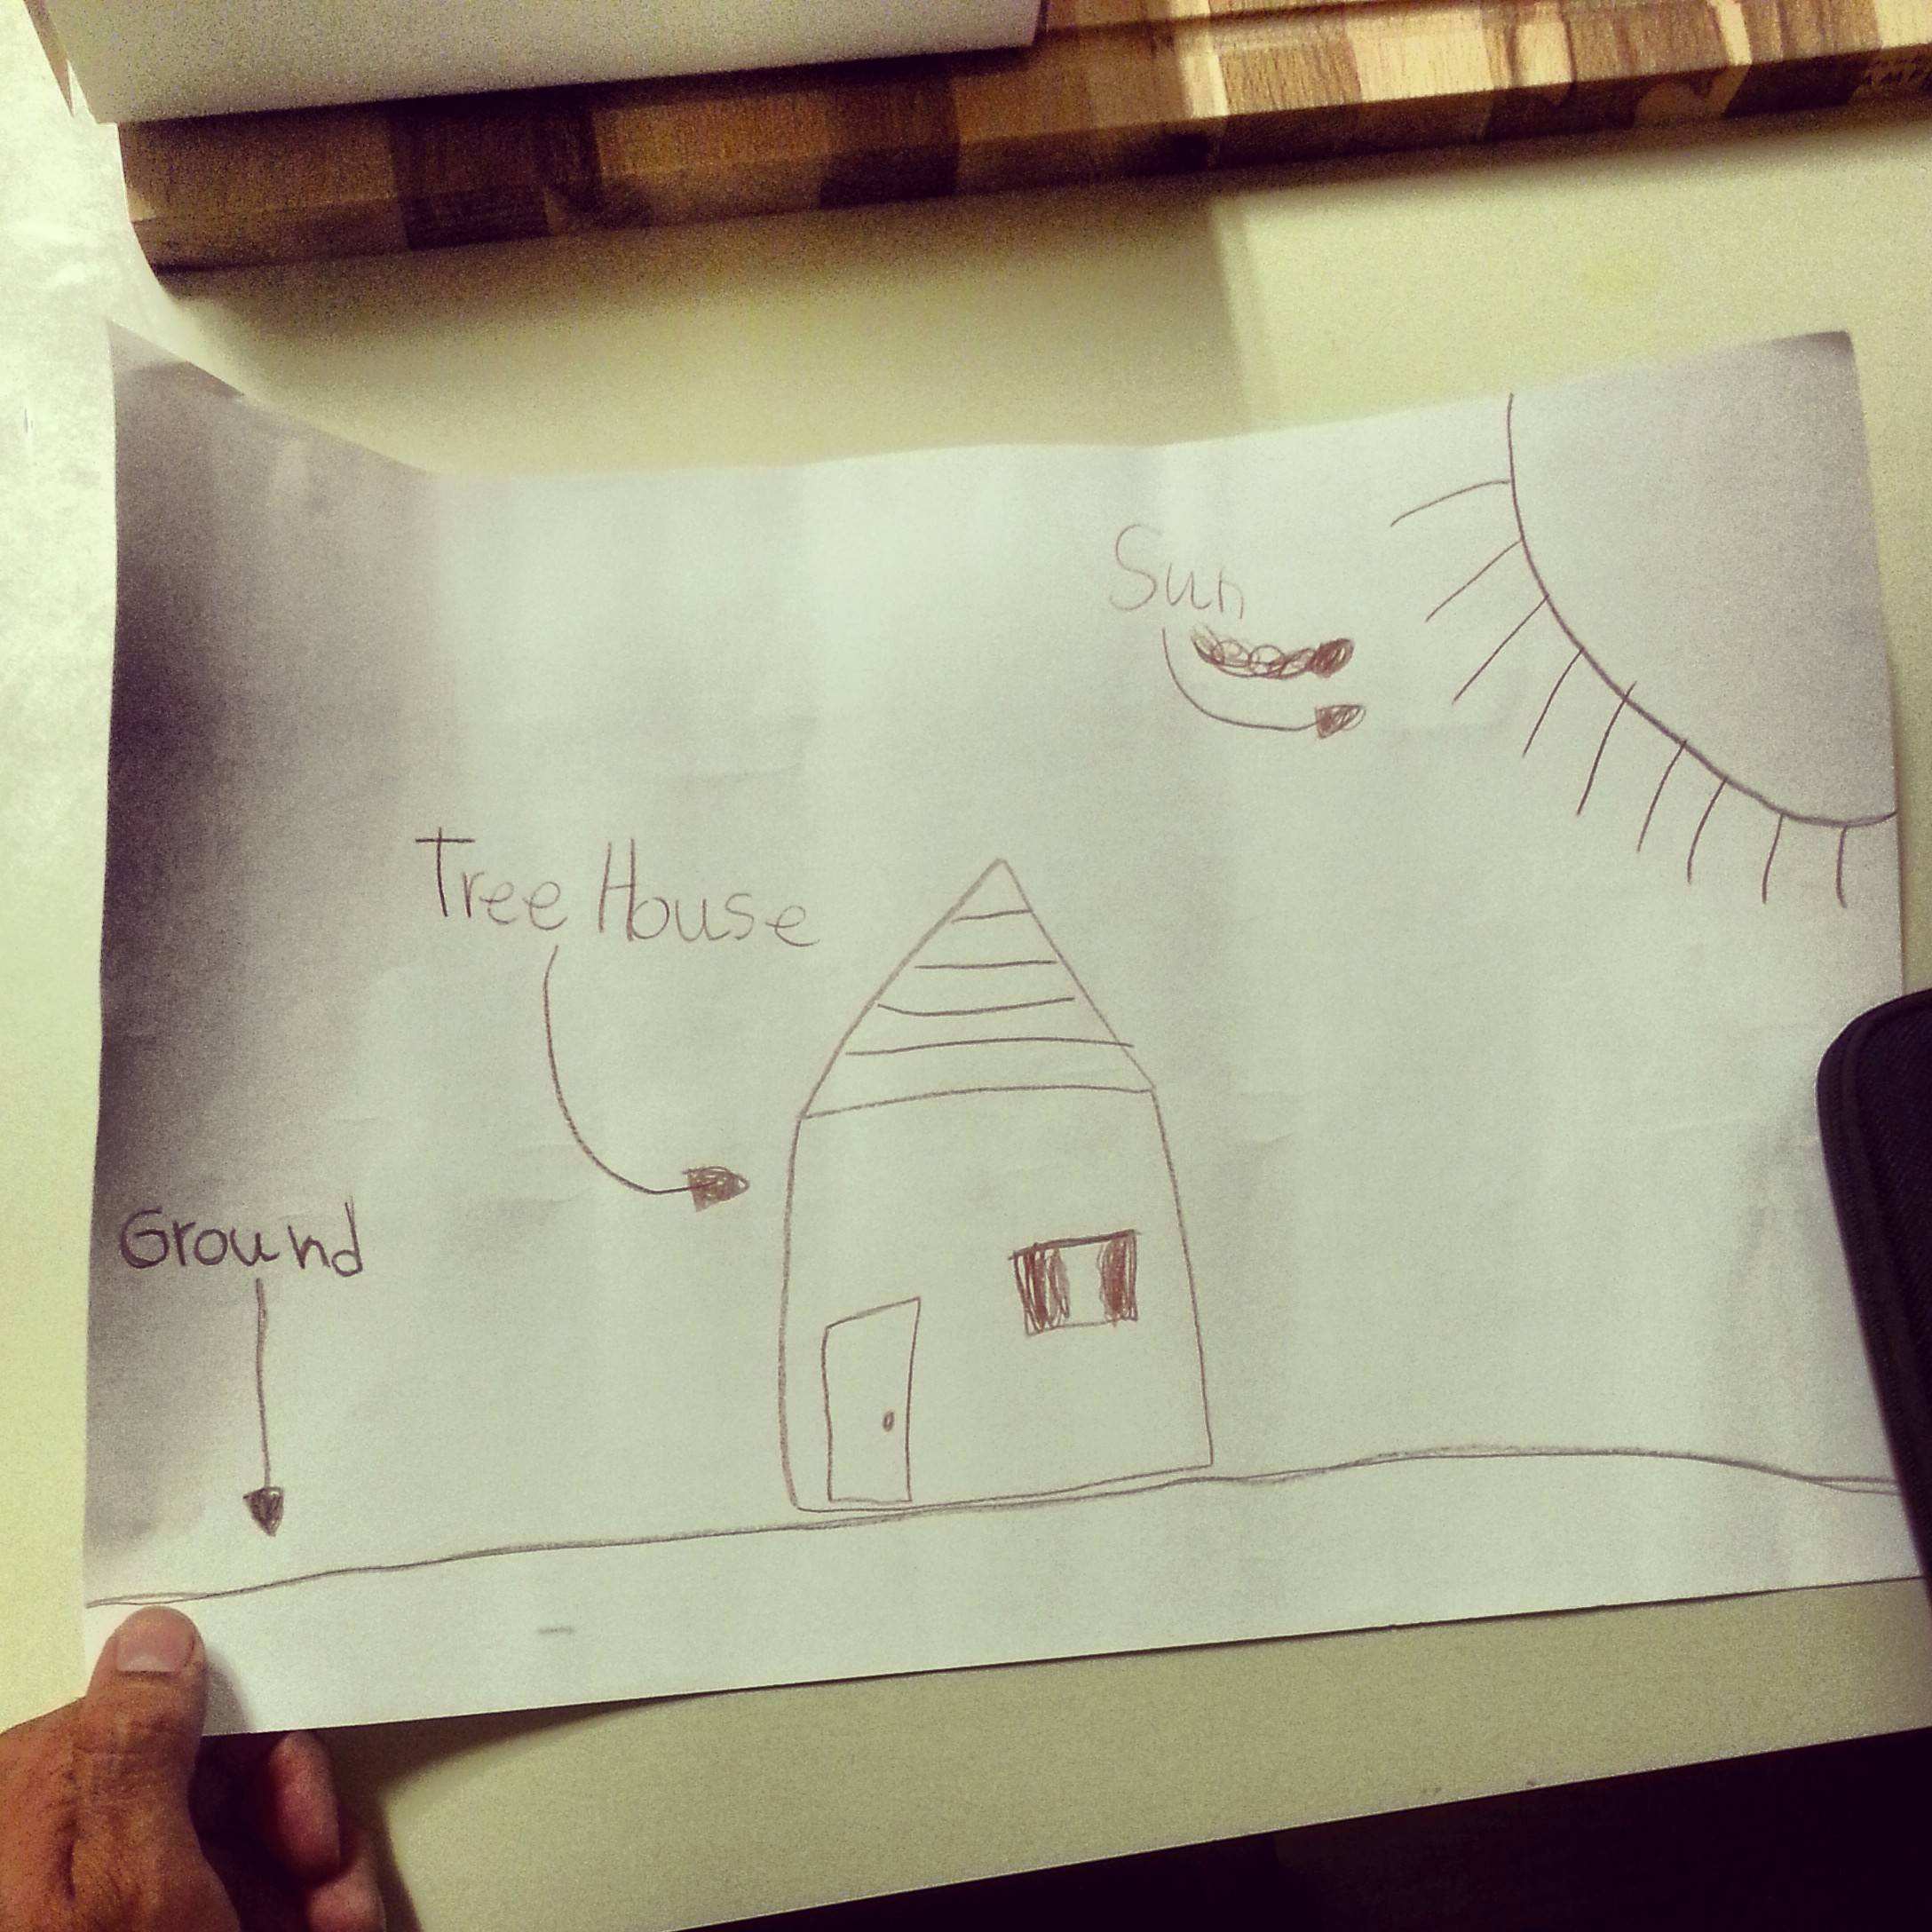 Sun
Tree House
Ground